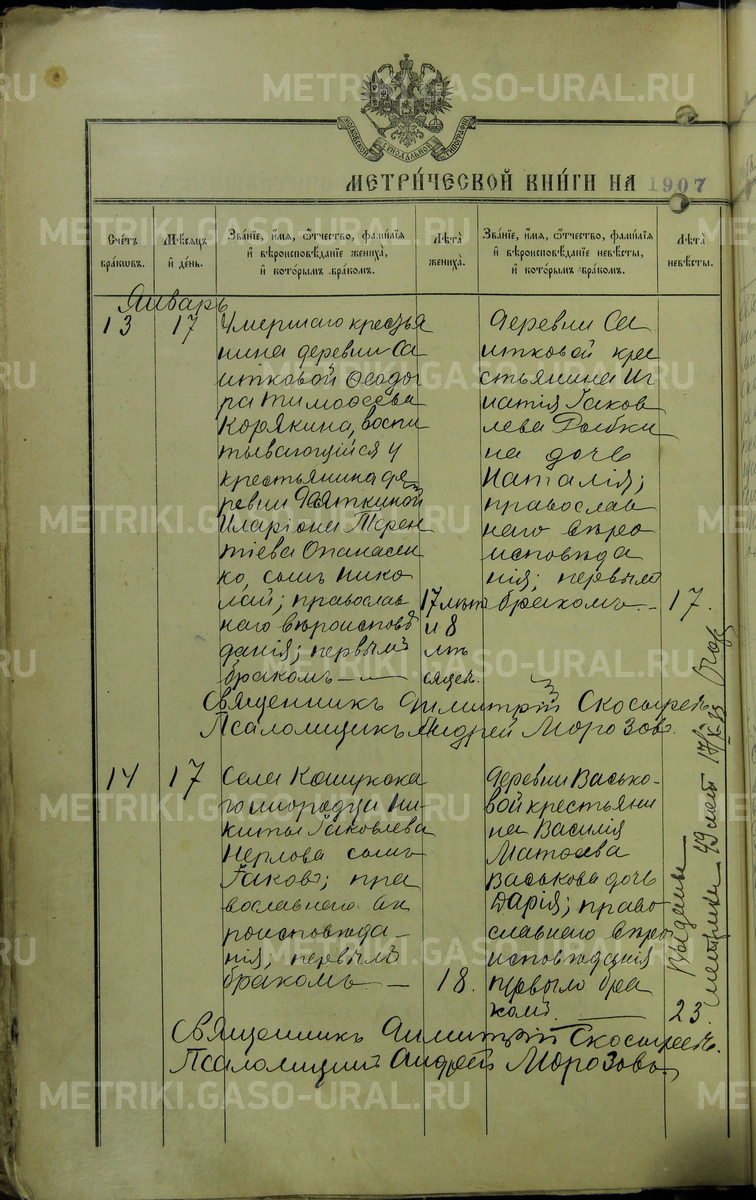 METRIKI.GASO-URAL.RU
МОСКОВСКОЙ СѴНОДАЛЬНОЙ ТИПОГРАФІИ
МЕТРИ́ЧЕСКОЙ КНИ́ГИ НА 1907
Счéтъ бра́кωвъ.
Мѣ́сяцъ и҆ де́нь.
Зва́нїе, и҆́мя, ѻ҆́тчество, фами́лїя
и҆ вѣроисповѣ́данїе жениха̀,
и҆ кото́рымъ бра́комъ.
Лѣ́та жениха̀.
Зва́нїе, и҆́мя, ѻ҆́тчество, фами́лїя
и҆ вѣроисповѣ́данїе невѣ́сты,
и҆ кото́рымъ бра́комъ.
Лѣ́та невѣ́сты.
Январь
13
17
Умершаго крестья
нина деревни Са
итковой Ѳеодо
ра Тимоѳеева
Корякина, воспи
тывающійся у
крестьянина де
ревни
Иларіона Терен
тіева Опанасен
ко, сынъ Нико
лай; православ
наго вѣроисповѣ
данія; первымъ
бракомъ
17 лѣтъ
и 8
мѣ
сяцев.
Деревни Са
итковой кре
стьянина Иг
натія Іаков
лева Рыбки
на дочь
Наталія;
православ
наго вѣро
исповѣда
нія; первымъ
бракомъ.
17.
Священникъ Димитрій Скосыревъ.
Псаломщикъ Андрей Морозовъ.
14
17
Села Кошукска
го инородца Ни
киты Іаковлева
Нерлова сынъ
Іаковъ; пра
вославнаго вѣ
роисповѣда
нія, первымъ
бракомъ.
18.
Деревни Васько
вой крестьяни
на Василія
Матѳеева
Васькова дочь
Дарія; право
славнаго вѣро
исповѣданія
первымъ бра
комъ.
23.
Выданы
метрики
Священникъ Димитрій Скосыревъ.
Псаломщикъ Андрей Морозовъ.